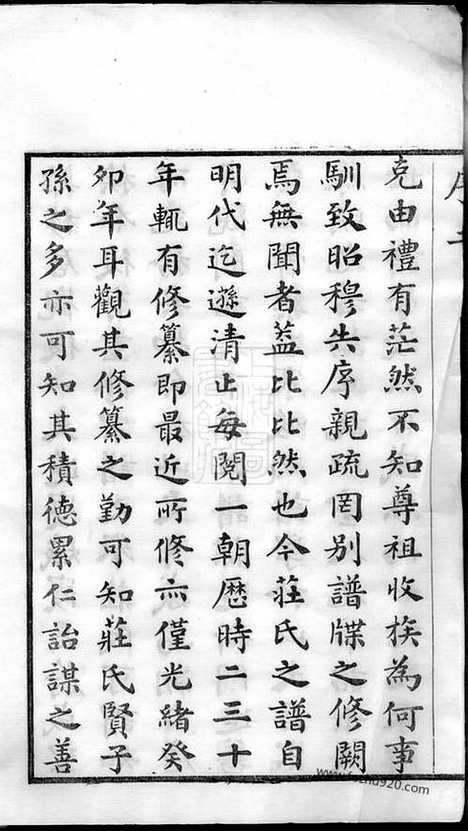 克由禮有茫然不知尊祖收族為何事
馴致昭穆失序親疏罔别譜牒之修闕
焉無聞者盖比比然也今莊氏之譜自
明代迄遜清止每閱一朝歷時二三十
年輒有修纂即最近所修亦僅光緒癸
卯年耳觀其修纂之勤可知莊氏賢子
孫之多亦可知其積德累仁詒謀之善